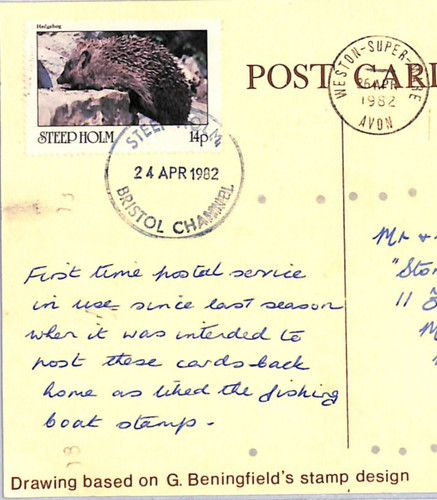 Hedgehog
STEEP HOLM 14p
POST CARD
WESTON-SUPER-MARE
26 APR
1982
AVON
STEEP HOLM
24 APR 1982
BRISTOL CHANNEL
First time postal service
in use since last season
when it was intended to
post these cards back
home as liked the fishing
boat stamp.
Mr &
"Ston
11
M
Drawing based on G. Beningfield's stamp design